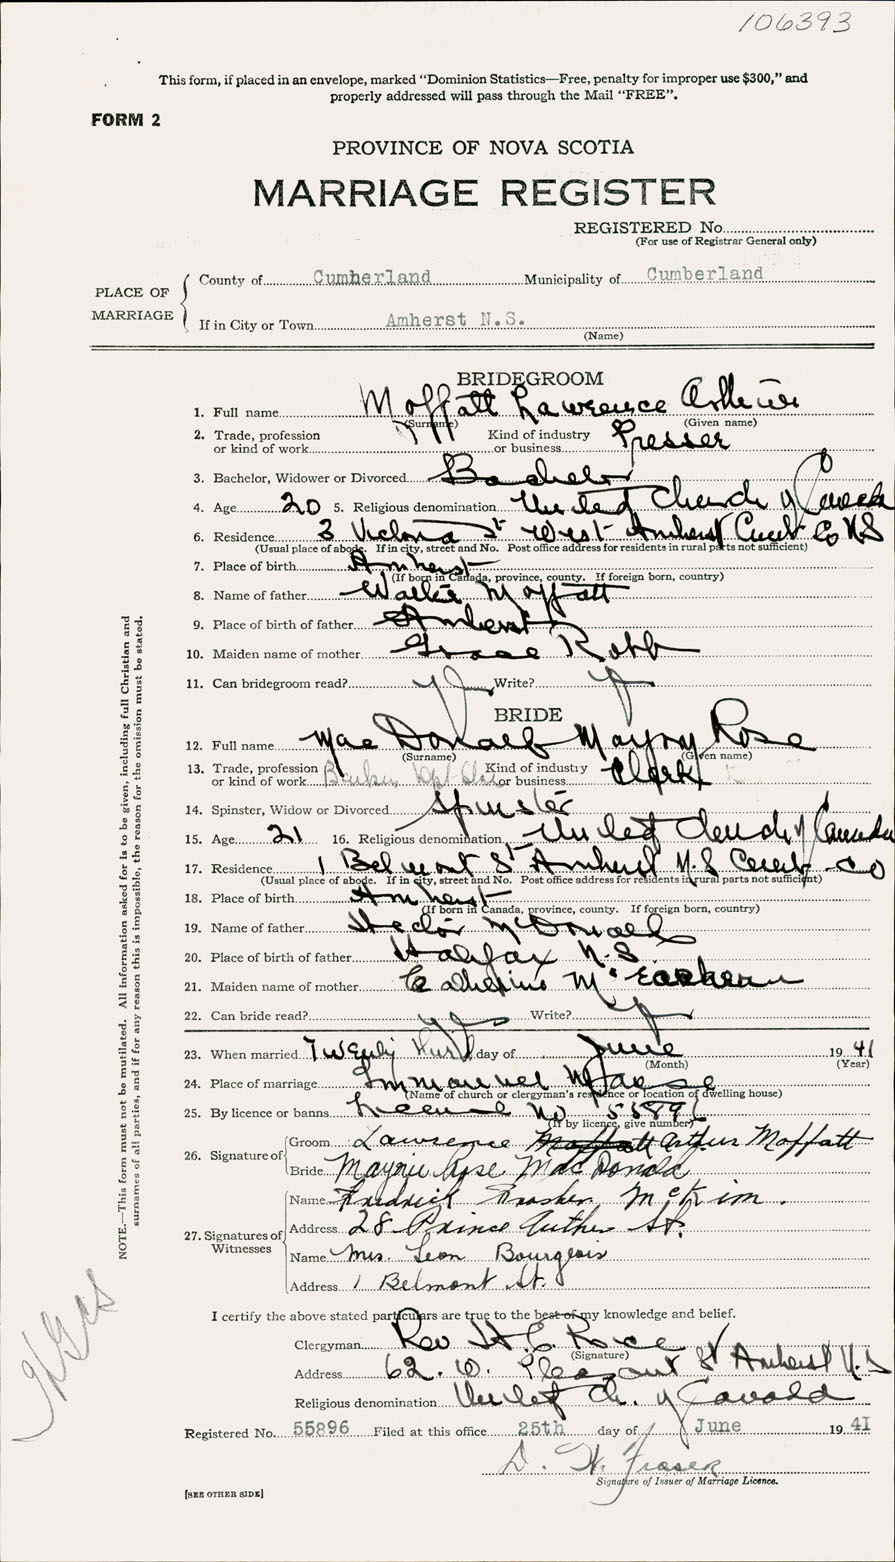 106393
This form, if placed in an envelope, marked "Dominion Statistics—Free, penalty for improper use $300," and
properly addressed will pass through the Mail "FREE".
FORM 2
PROVINCE OF NOVA SCOTIA
MARRIAGE REGISTER
REGISTERED No.
(For use of Registrar General only)
PLACE OF MARRIAGE
County of Cumherland Municipality of Cumberland
If in City or Town Amherst N.S.
(Name)
BRIDEGROOM
1. Full name Moffatt Lawrence
(Surname) (Given name)
2. Trade, profession or kind of work Kind of industry or business Presser
3. Bachelor, Widower or Divorced Bachelor
4. Age 20 5. Religious denomination United Church of Canada
6. Residence 3 Victoria St West Amherst Cumb Co N S
(Usual place of abode. If in city, street and No. Post office address for residents in rural parts not sufficient)
7. Place of birth Amherst
(If born in Canada, province, county. If foreign born, country)
8. Name of father Walter Moffatt
9. Place of birth of father Amherst
10. Maiden name of mother Grace Robb
11. Can bridegroom read? Write?
BRIDE
12. Full name Mac Donald Rose
(Surname) (Given name)
13. Trade, profession or kind of work Kind of industry or business Clerk
14. Spinster, Widow or Divorced Spinster
15. Age 21 16. Religious denomination United Church of Canada
17. Residence 1 Belmont St Amherst N.S Cumb Co
(Usual place of abode. If in city, street and No. Post office address for residents in rural parts not sufficient)
18. Place of birth Amherst
(If born in Canada, province, county. If foreign born, country)
19. Name of father Hector McDonald
20. Place of birth of father Halifax N.S
21. Maiden name of mother Catherine McEachern
22. Can bride read? yes Write?
23. When married Twenty day of June 19 41
(Month) (Year)
24. Place of marriage Immanuel
(Name of church or clergyman's residence or location of dwelling house)
25. By licence or banns License No 55896
(If by licence, give number)
26. Signature of
Groom Lawrence Moffatt Arthur Moffatt
Bride Rose MacDonald
27. Signatures of Witnesses
Name McKim.
Address 28 Prince Arthur St.
Name Mrs. Leon Bourgeois
Address 1 Belmont St.
I certify the above stated particulars are true to the best of my knowledge and belief.
Clergyman Rev H. E.
(Signature)
Address 62. W. Pleasant St Amherst N.S
Religious denomination United Ch. of Canada
Registered No. 55896 Filed at this office 25th day of June 19 41
D. H. Fraser
Signature of Issuer of Marriage Licence.
[SEE OTHER SIDE]
NOTE.—This form must not be mutilated. All information asked for is to be given, including full Christian and
surnames of all parties, and if for any reason this is impossible, the reason for the omission must be stated.